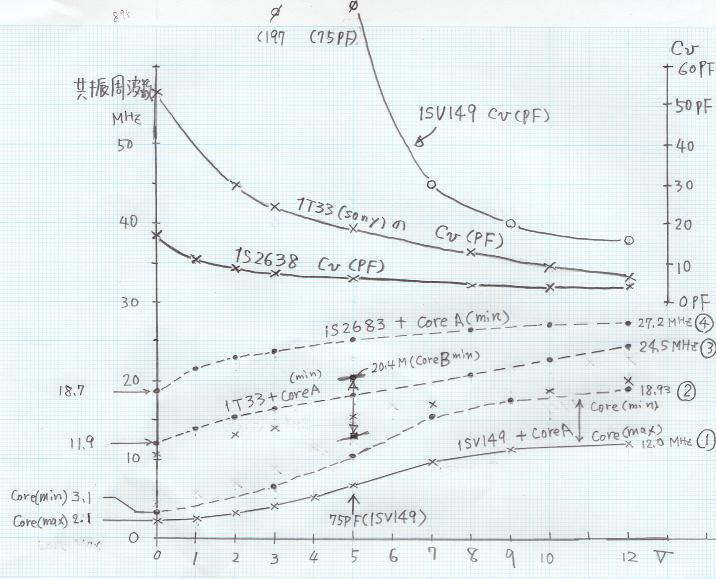 φ φ
(197 (75PF)
Cv
60PF
共振周波数
MHz
50PF
50
1SV149 Cv(PF)
40
30
1T33(sony)の Cv(PF)
40
20
1S2638 Cv(PF)
10
30
0PF
1S2683 + Core A(min)
27.2MHz ④
24.5MHz ③
20.4M(CoreBmin)
(min)
20
18.7
1T33+CoreA
18.93 ②
Core(min)
11.9
1SV149 + CoreA
Core(max)
12.0MHz ①
10
Core(min) 3.1
Core(max) 2.1
75PF(1SV149)
0
0 1 2 3 4 5 6 7 8 9 10 12 V